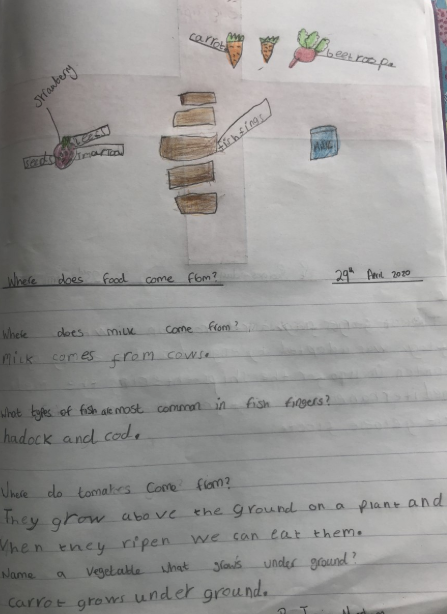 carrot
beetroope
strianberry
seeds
fishfings
milk
Where does food come from?
29th April 2020
Where does milk come from?
Milk comes from cowse
What types of fish are most common in fish fingers?
hadock and cod.
Where do tomatoes come from?
They grow above the ground on a plant and
When they ripen we can eat them.
Name a vegetable what grows under ground?
carrot grows under ground.